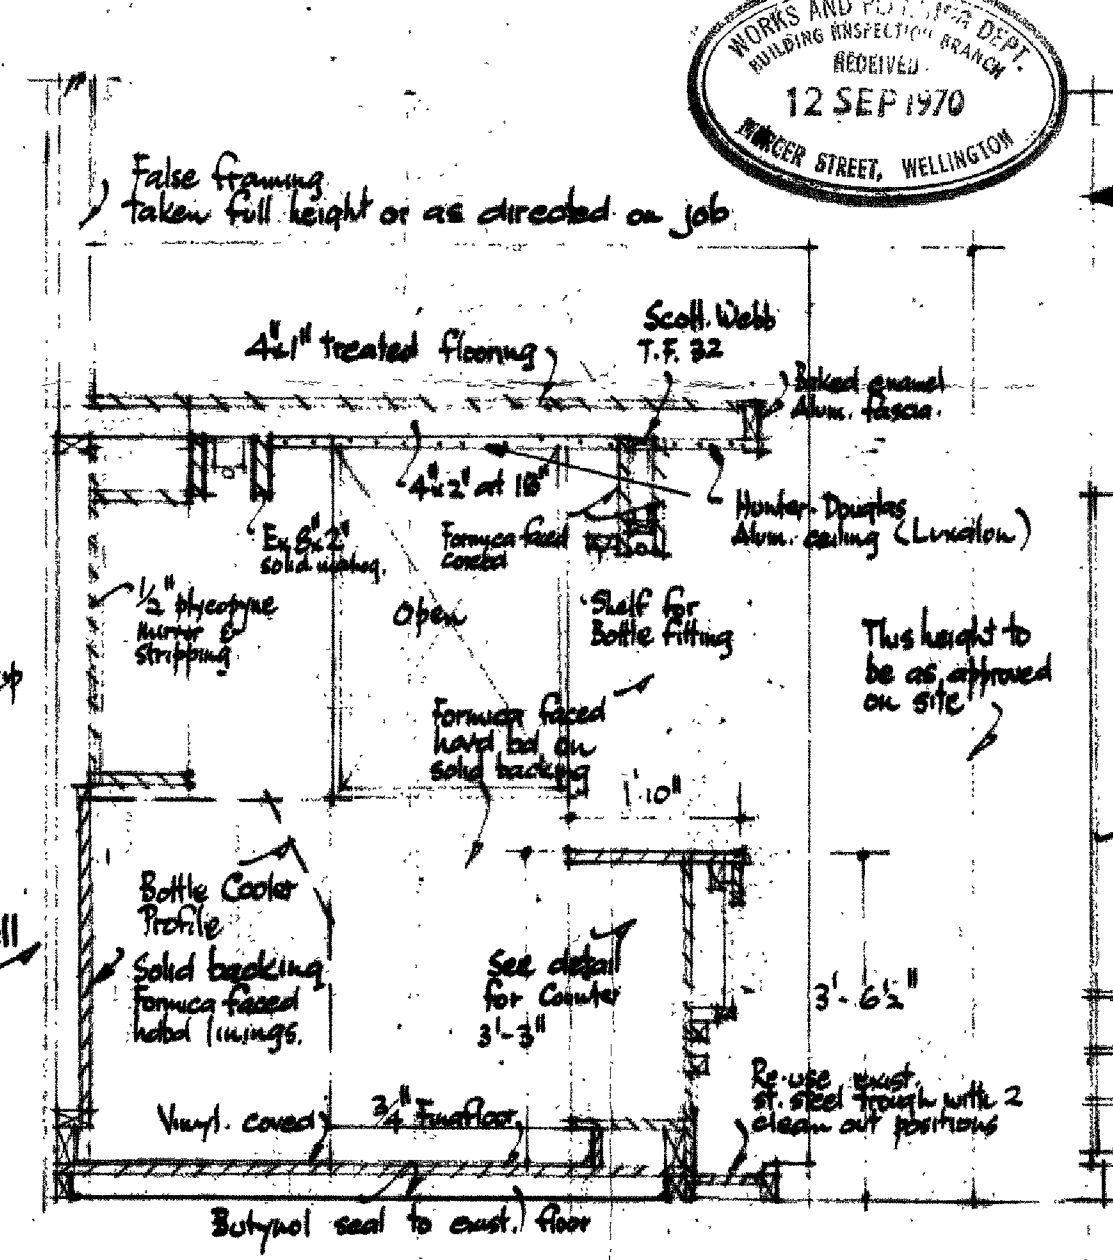 WORKS AND DEPT.
BUILDING INSPECTION BRANCH
RECEIVED
12 SEP 1970
MERCER STREET, WELLINGTON
False framing
taken full height or as directed on job
Scott. Webb
T.F. 32
4"x1" treated flooring
Baked enamel
Alum. fascia.
4"x2" at 18"
Hunter-Douglas
Alum. ceiling (Luxalon)
Ex 8"x2"
solid mahog.
Formica faced
coved
1/2" plycopyne
mirror &
stripping
Open
Shelf for
Bottle fitting
This height to
be as approved
on site
Formica faced
hard bd on
solid backing
1'·10"
Bottle Cooler
Profile
Solid backing
Formica faced
hdbd linings.
See detail
for Counter
3'-3"
3'-6½"
Re-use exist.
st. steel trough with 2
clean out positions
Vinyl. coved
3/4" Finafloor
Butynol seal to exist. floor